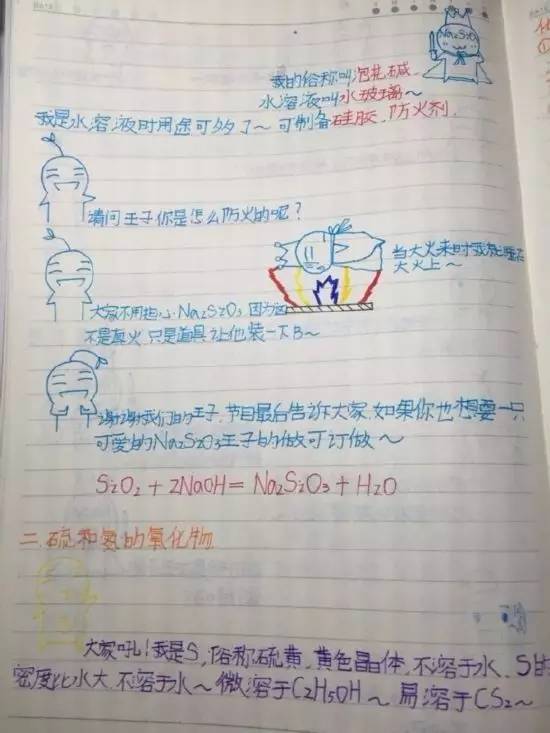 Na2SiO3
我的俗称叫泡花碱.
水溶液叫水玻璃~
我是水溶液时用途可多了~可制备硅胶、防火剂.
请问王子你是怎么防火的呢?
当大火来时我就睡在
大火上~
大家不用担心Na2SiO3,因为这
不是真火,只是道具让他装一下B~
谢谢我们的王子,节目最后告诉大家,如果你也想要一只
可爱的Na2SiO3王子的做可订做~
SiO2+2NaOH=Na2SiO3+H2O
二.硫和氮的氧化物
大家吼!我是S,俗称硫黄,黄色晶体,不溶于水,S的
密度比水大,不容于水~微溶于C2H5OH~易溶于CS2~